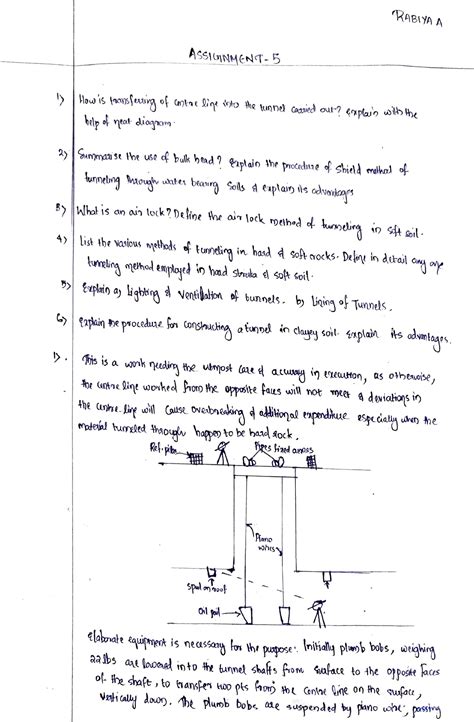 RABIYA A
ASSIGNMENT-5
1) How is transferring of centre line into the tunnel carried out? explain with the
help of neat diagram.
2) Summarise the use of bulk head? Explain the procedure of Shield method of
tunneling through water bearing soils & explain its advantages
3) What is an air lock? Define the air lock method of tunneling in soft soil.
4) List the various methods of tunneling in hard & soft rocks. Define in detail any one
tunneling method employed in hard strata & soft soil.
5) Explain a) Lighting & Ventillation of tunnels. b) Lining of Tunnels.
6) Explain the procedure for constructing a tunnel in clayey soil. Explain its advantages.
1). This is a work needing the utmost care & accuracy in execution, as otherwise,
the centre line worked from the opposite faces will not meet & deviations in
the centre line will cause overbreaking & additional expenditure especially when the
material tunneled through happen to be hard rock.
Ref. pillar
Pipes fixed across
Piano
wires
Spad on roof
Oil pail
Elaborate equipment is necessary for the purpose. Initially plumb bobs, weighing
22lbs are lowered into the tunnel shafts from surface to the opposite faces
of the shaft, to transfer two pts from the centre line on the surface,
vertically down. The plumb bobs are suspended by piano wire, passing